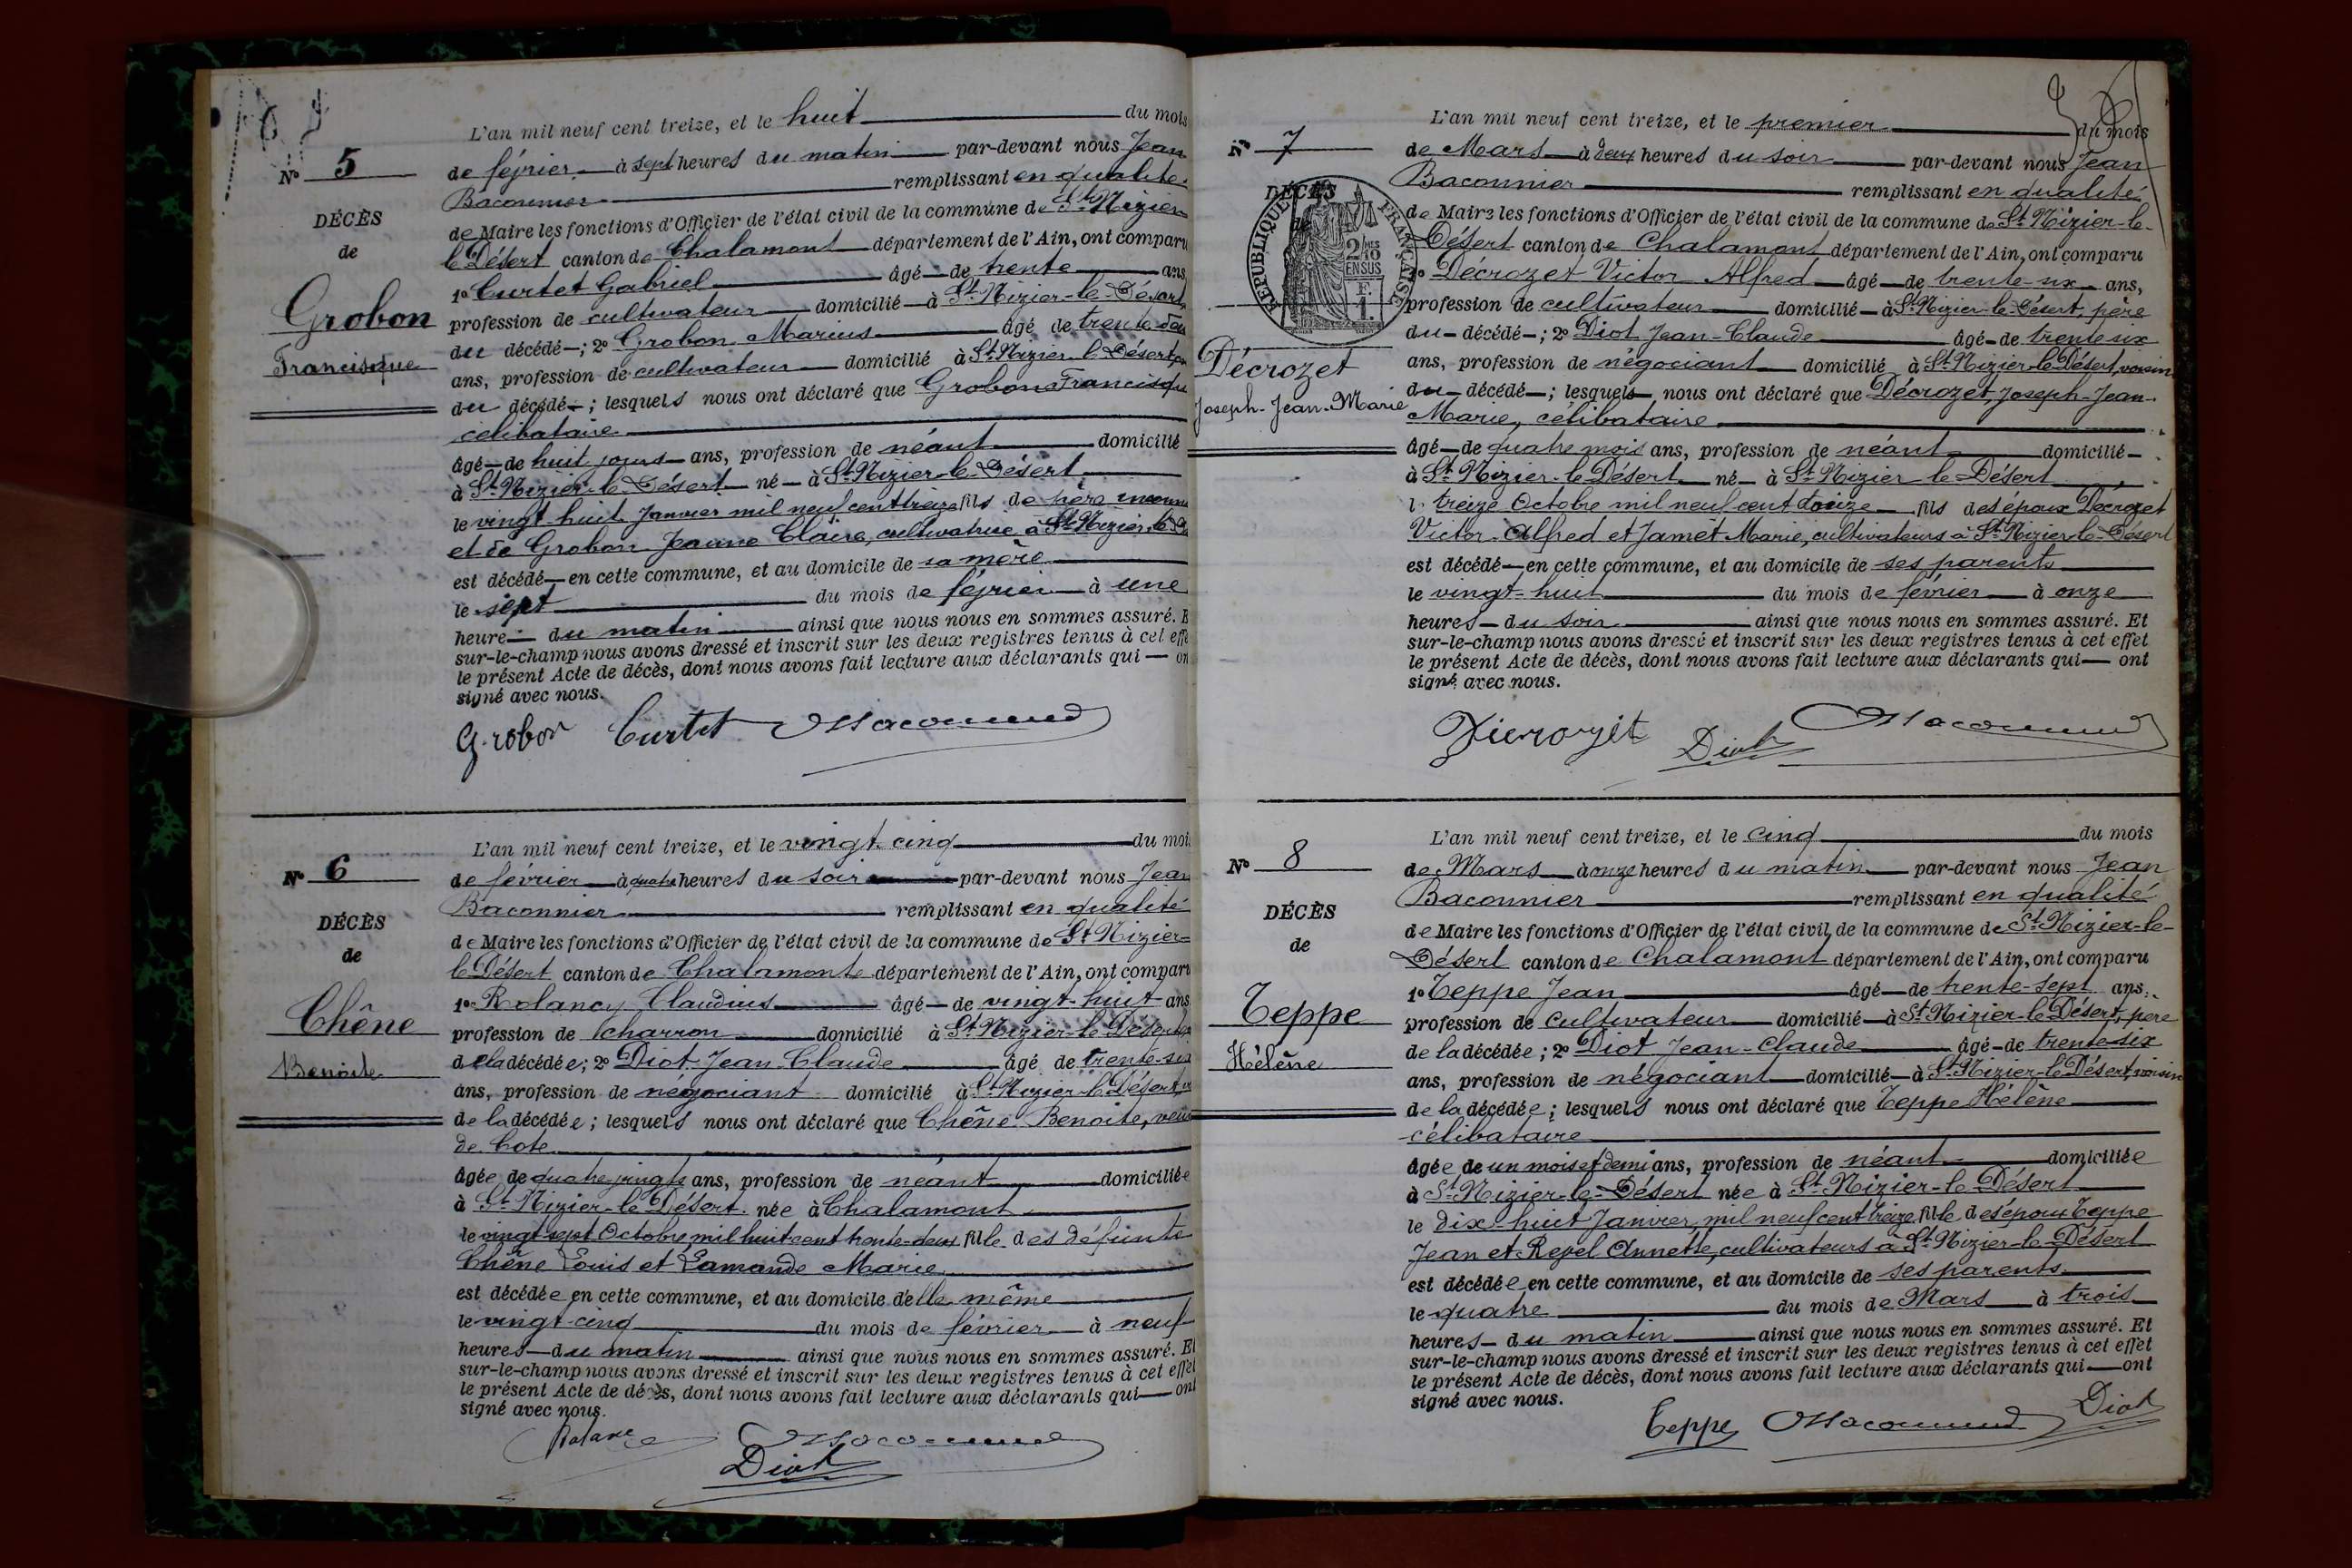 N° 5
DÉCÈS
de
Grobon
Francisque
L'an mil neuf cent treize, et le huit du mois
de février à sept heures du matin par-devant nous Jean
Baconnier remplissant en qualité
de Maire les fonctions d'Officier de l'état civil de la commune de St Nizier
le Désert canton de Chalamont département de l'Ain, ont comparu
1° Curtet Gabriel âgé de trente ans,
profession de cultivateur domicilié à St Nizier-le-Désert
du décédé; 2° Grobon Marius âgé de trente
ans, profession de cultivateur domicilié à St Nizier-le-Désert
du décédé; lesquels nous ont déclaré que Grobon Francisque
célibataire
âgé de huit jours ans, profession de néant domicilié
à St Nizier-le-Désert né à St Nizier-le-Désert
le vingt huit Janvier mil neuf cent treize fils de père inconnu
et de Grobon Jeanne Claire, cultivatrice à St Nizier-le-
est décédé en cette commune, et au domicile de sa mère
le sept du mois de février à une
heure du matin ainsi que nous nous en sommes assuré. E
sur-le-champ nous avons dressé et inscrit sur les deux registres tenus à cet effe
le présent Acte de décès, dont nous avons fait lecture aux déclarants qui on
signé avec nous.
Grobon Curtet Baconnier
N° 6
DÉCÈS
de
Chêne
Benoite
L'an mil neuf cent treize, et le vingt-cinq du moi
de février à quatre heures du soir par-devant nous Jean
Baconnier remplissant en qualité
de Maire les fonctions d'Officier de l'état civil de la commune de St Nizier-
le Désert canton de Chalamont département de l'Ain, ont comparu
1° Rolancy Claudius âgé de vingt-huit ans
profession de charron domicilié à St Nizier-le-Désert
de la décédée; 2° Diot Jean Claude âgé de trente-six
ans, profession de négociant domicilié à St Nizier-le-Désert
de la décédée; lesquels nous ont déclaré que Chêne Benoite, veuve
de Cote
âgée de quatre-vingts ans, profession de néant domiciliée
à St Nizier-le-Désert née à Chalamont
le vingt-sept Octobre mil huit cent trente-deux fille des défunts
Chêne Louis et Lamande Marie
est décédée en cette commune, et au domicile d'elle même
le vingt-cinq du mois de février à neuf
heures du matin ainsi que nous nous en sommes assuré. Et
sur-le-champ nous avons dressé et inscrit sur les deux registres tenus à cet effet
le présent Acte de décès, dont nous avons fait lecture aux déclarants qui ont
signé avec nous.
Baconnier
Diot
N° 7
DÉCÈS
de
RÉPUBLIQUE FRANÇAISE
2/10 EN SUS
F.
1.
Décrozet
Joseph-Jean-Marie
L'an mil neuf cent treize, et le premier du mois
de Mars à deux heures du soir par-devant nous Jean
Baconnier remplissant en qualité
de Maire les fonctions d'Officier de l'état civil de la commune de St Nizier-le-
Désert canton de Chalamont département de l'Ain, ont comparu
1° Décrozet Victor Alfred âgé de trente-six ans,
profession de cultivateur domicilié à St Nizier-le-Désert, père
du décédé; 2° Diot Jean-Claude âgé de trente six
ans, profession de négociant domicilié à St Nizier-le-Désert, voisin
du décédé; lesquels nous ont déclaré que Décrozet Joseph-Jean-
Marie, célibataire
âgé de quatre mois ans, profession de néant domicilié
à St Nizier-le-Désert né à St Nizier le Désert
treize Octobre mil neuf cent douze fils des époux Décrozet
Victor-Alfred et Jamet Marie, cultivateurs à St Nizier-le-Désert
est décédé en cette commune, et au domicile de ses parents
le vingt-huit du mois de février à onze
heures du soir ainsi que nous nous en sommes assuré. Et
sur-le-champ nous avons dressé et inscrit sur les deux registres tenus à cet effet
le présent Acte de décès, dont nous avons fait lecture aux déclarants qui ont
signé avec nous.
Diot Baconnier
N° 8
DÉCÈS
de
Teppe
Hélène
L'an mil neuf cent treize, et le cinq du mois
de Mars à onze heures du matin par-devant nous Jean
Baconnier remplissant en qualité
de Maire les fonctions d'Officier de l'état civil de la commune de St Nizier-le-
Désert canton de Chalamont département de l'Ain, ont comparu
1° Teppe Jean âgé de trente-sept ans,
profession de cultivateur domicilié à St Nizier-le-Désert, père
de la décédée; 2° Diot Jean-Claude âgé de trente-six
ans, profession de négociant domicilié à St Nizier-le-Désert, voisin
de la décédée; lesquels nous ont déclaré que Teppe Hélène
célibataire
âgée de un mois et demi ans, profession de néant domiciliée
à St Nizier-le-Désert née à St Nizier-le-Désert
le dix-huit Janvier, mil neuf cent treize fille des époux Teppe
Jean et Revel Annette, cultivateurs à St Nizier-le-Désert
est décédée en cette commune, et au domicile de ses parents
le quatre du mois de Mars à trois
heures du matin ainsi que nous nous en sommes assuré. Et
sur-le-champ nous avons dressé et inscrit sur les deux registres tenus à cet effet
le présent Acte de décès, dont nous avons fait lecture aux déclarants qui ont
signé avec nous.
Teppe Baconnier Diot